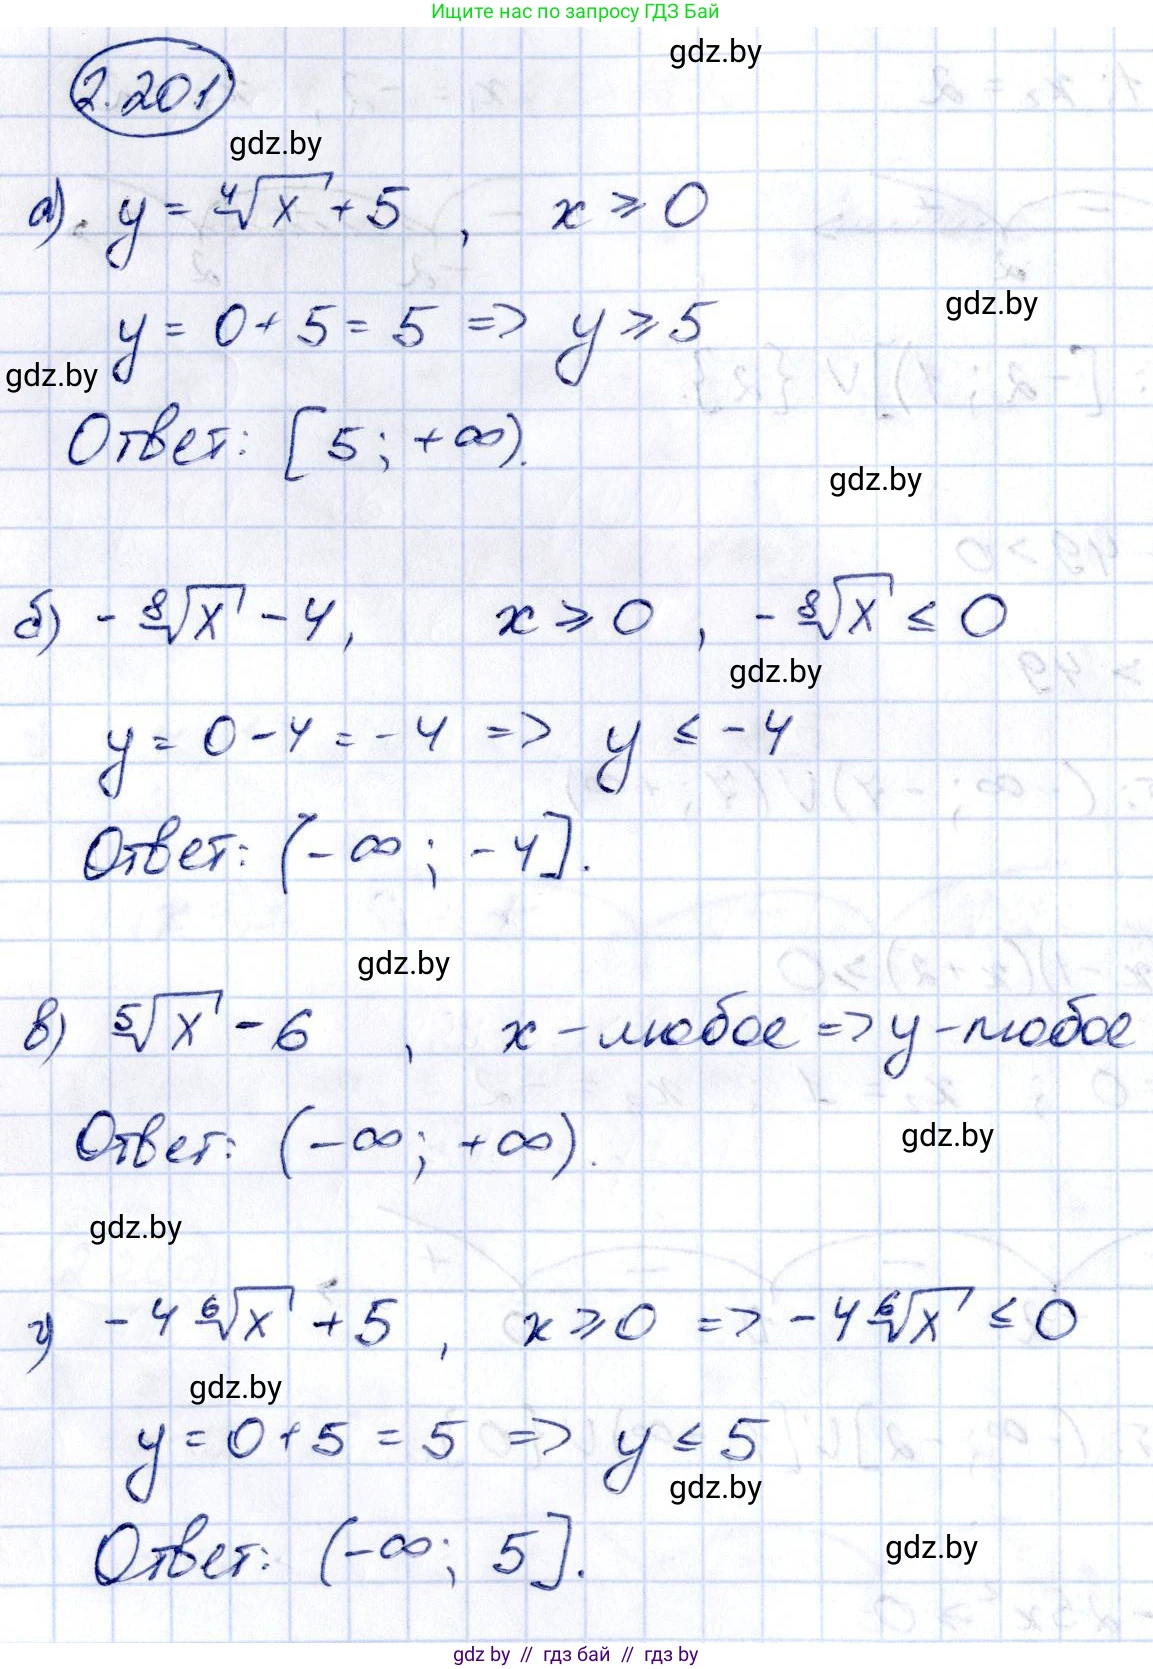 Ищите нас по запросу ГДЗ Бай
gdz.by
2.201
gdz.by
а) y = ⁴√x + 5, x ⩾ 0
gdz.by
y = 0 + 5 = 5 => y ⩾ 5
gdz.by
Ответ: [5; +∞).
gdz.by
б) - ⁸√x - 4, x ⩾ 0, - ⁸√x ≤ 0
gdz.by
y = 0 - 4 = - 4 => y ≤ - 4
Ответ: (-∞; - 4].
gdz.by
в) ⁵√x - 6, x - любое => y - любое
Ответ: (-∞; +∞).
gdz.by
gdz.by
г) - 4 ⁶√x + 5, x ⩾ 0 => - 4 ⁶√x ≤ 0
gdz.by
y = 0 + 5 = 5 => y ≤ 5
gdz.by
Ответ: (-∞; 5].
gdz.by
gdz.by // гдз бай // gdz.by